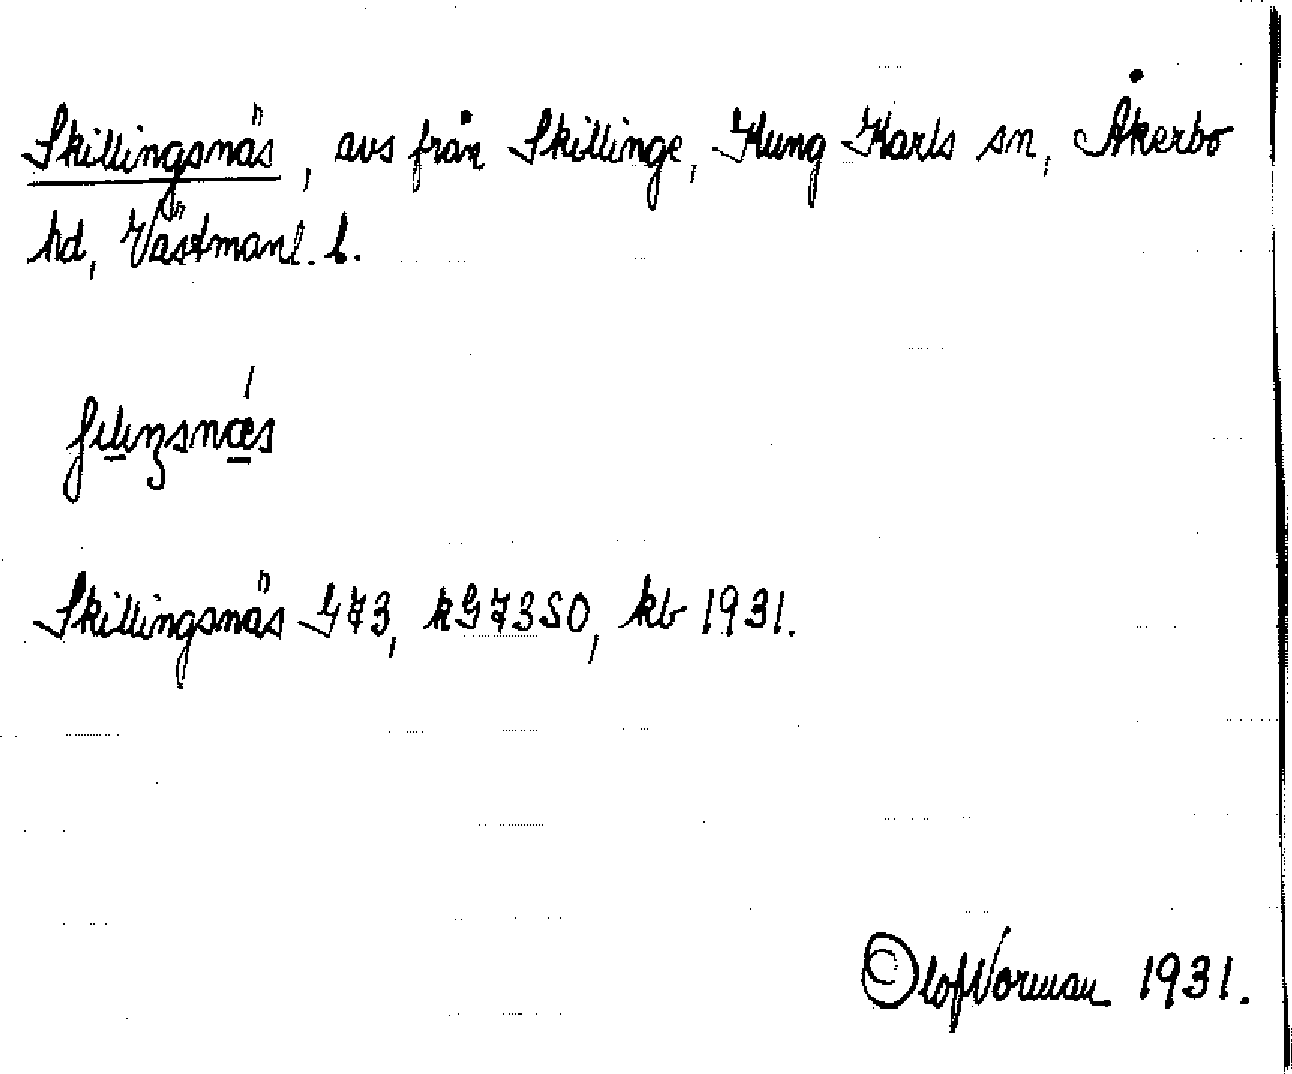 Skillingsnäs, avs från Skillinge, Kung Karls sn, Åkerbo
hd, Västmanl. l.
Skillingsnäs G73, kG73SO, kb 1931.
Olof Norman 1931.